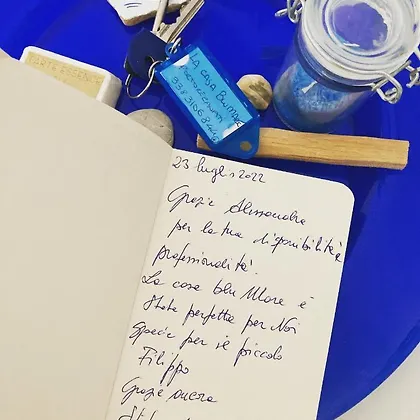 LA CASA BLUMARE
23 luglio 2022
Grazie Alessandra
per la tua disponibilità e
professionalità.
La casa blu Mare è
stata perfetta per Noi
Specie per il piccolo
Filippo
Grazie ancora